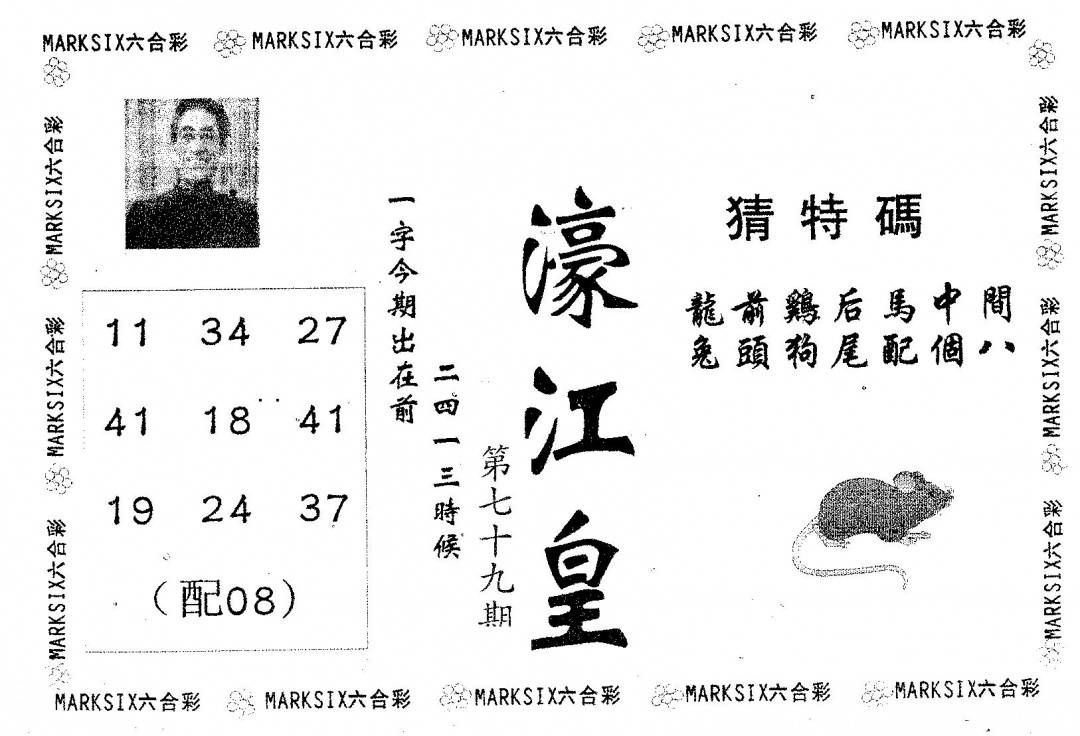 MARKSIX六合彩 MARKSIX六合彩 MARKSIX六合彩 MARKSIX六合彩 MARKSIX六合彩
MARKSIX六合彩
MARKSIX六合彩
MARKSIX六合彩
MARKSIX六合彩
MARKSIX六合彩
MARKSIX六合彩
猜特碼
龍前鷄后馬中間
兔頭狗尾配個八
濠江皇
第七十九期
一字今期出在前
二四一三時候
11 34 27
41 18 41
19 24 37
(配08)
MARKSIX六合彩 MARKSIX六合彩 MARKSIX六合彩 MARKSIX六合彩 MARKSIX六合彩